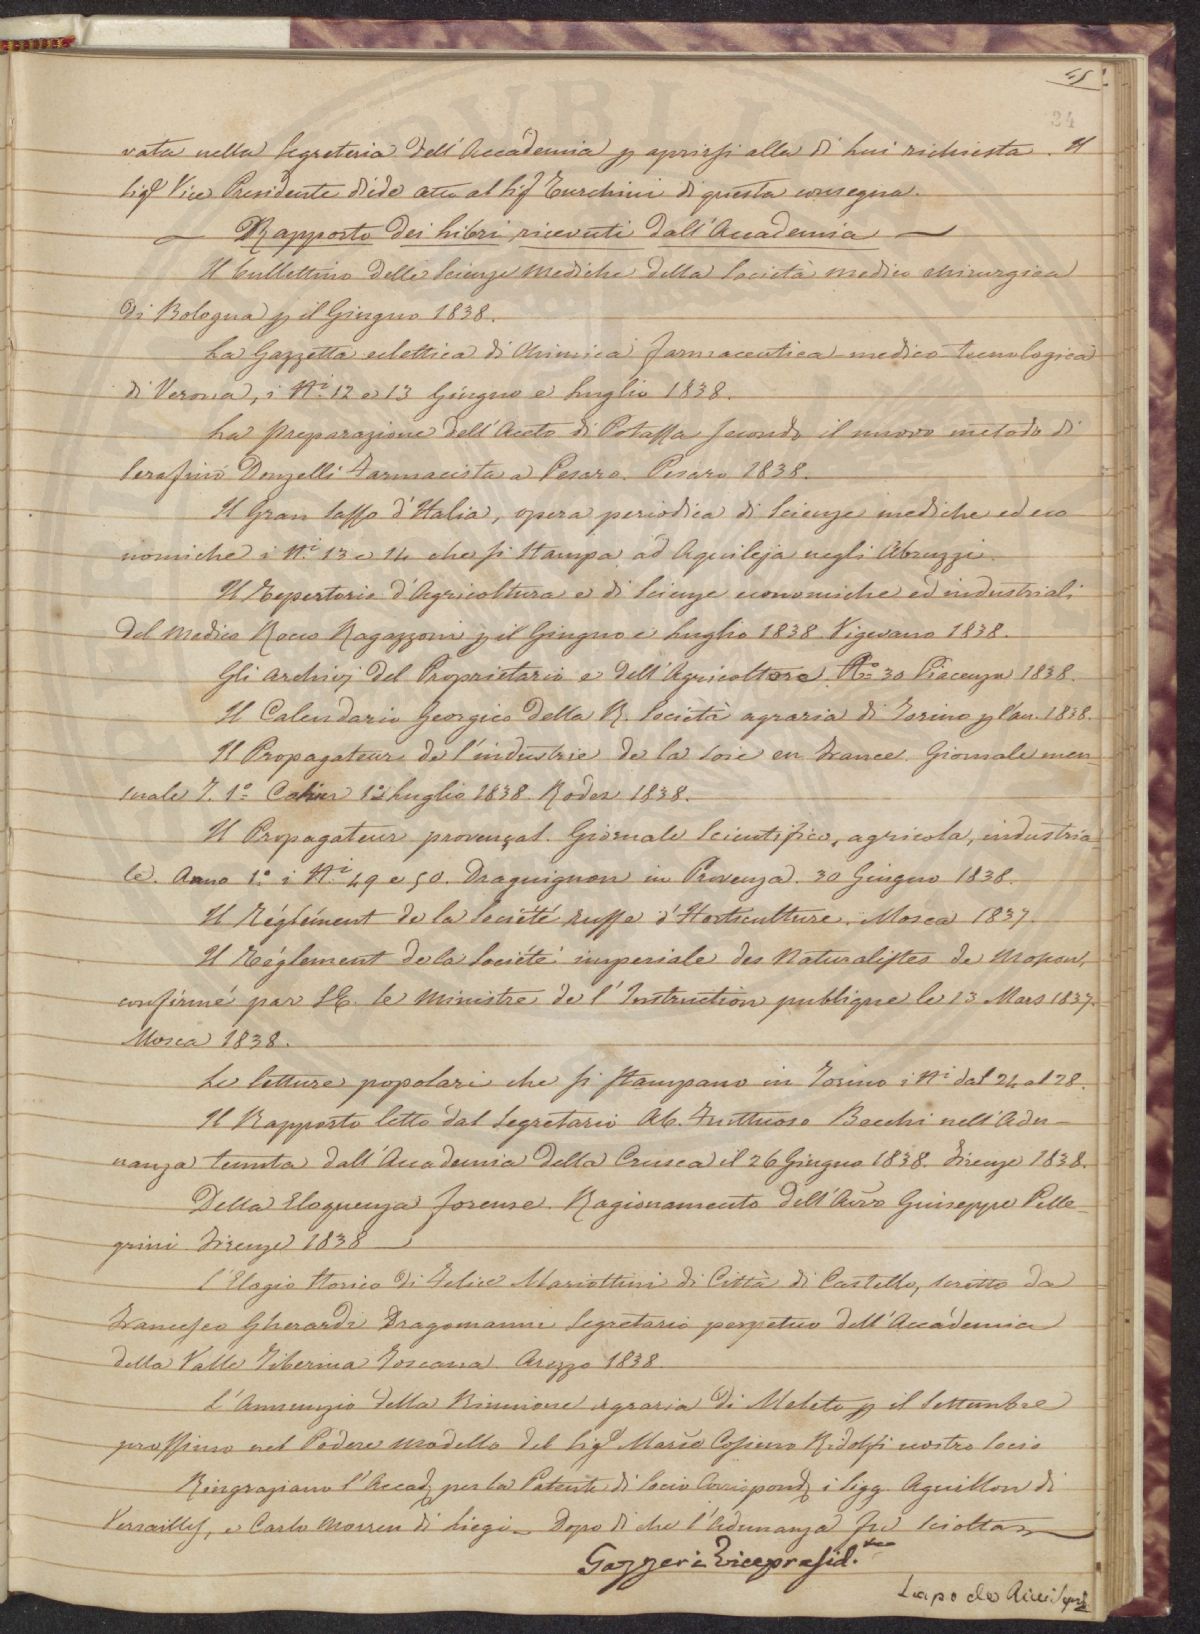 45
34
vata nella Segreteria dell'Accademia p aprirsi alla di Lui richiesta. Il
Sigr Vice Presidente diede atto al Sigr Turchini di questa consegna.
Rapporto dei Libri ricevuti dall'Accademia
Il bullettino delle Scienze Mediche della Società medico chirurgica
di Bologna p il Giugno 1838.
La Gazzetta eclettica di chimica farmaceutica medico tecnologica
di Verona, i Ni 12 e 13 Giugno e Luglio 1838.
La preparazione dell'Aceto di Potassa secondo il nuovo metodo di
Serafino Donzelli Farmacista a Pesaro. Pesaro 1838.
Il Gran Sasso d'Italia, opera periodica di Scienze mediche ed eco
nomiche i Ni 13 e 14 che si stampa ad Aquileja negli Abruzzi.
Il Repertorio d'Agricoltura e di Scienze economiche ed industriali
del medico Rocco Ragazzoni p il Giugno e Luglio 1838. Vigevano 1838.
Gli archivj del Proprietario e dell'Agricoltore. No 30 Piacenza 1838.
Il Calendario Georgico della R. Società agraria di Torino p l'an. 1838.
Il Propagateur de l'industrie de la soie en France. Giornale men_
suale T. 1o Cahier 1o Luglio 1838. Rodez 1838.
Il Propagateur provençal. Giornale Scientifico, agricola, industria_
le. Anno 1o i Ni 49 e 50. Draguignan in Provenza. 30 Giugno 1838.
Il Réglément de la Société russe d'Horticulture. Mosca 1837.
Il Réglement de la Société imperiale des Naturalistes de Moscou,
confirmé par S.E. le Ministre de l'Instruction pubblique le 13 Mars 1837.
Mosca 1838.
Le letture popolari che si stampano in Torino i Ni dal 24 al 28.
Il Rapporto letto dal Segretario Ab. Fruttuoso Becchi nell'Adu_
nanza tenuta dall'Accademia della Crusca il 26 Giugno 1838. Firenze 1838.
Della Eloquenza forense. Ragionamento dell'Avvo Giuseppe Pelle_
grini Firenze 1838
L'Elogio Storico di Felice Mariottini di Città di Castello, scritto da
Francesco Gherardi Dragomanni Segretario perpetuo dell'Accademia
della Valle Tiberina Toscana. Arezzo 1838.
L'Annunzio della Riunione Agraria di Meleto p il Settembre
prossimo nel Podere Modello del Sigr March Cosimo Ridolfi nostro Socio
Ringraziano l'Accad per la Patente di Socio Corrispond i Sigg. Aguillon di
Versailles, e Carlo Morren di Liegi_ Dopo di che l'Adunanza fu sciolta
Gazzeri Vicepresid.te
Lapo de Ricci